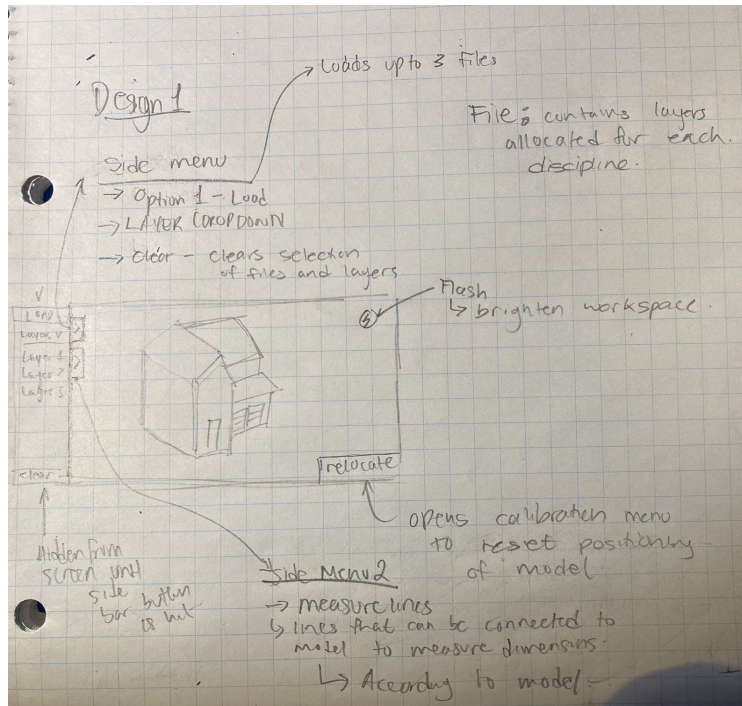 Loads up to 3 files
Design 1
File: contains layers
allocated for each.
discipline.
Side menu
→ Option 1 - Load
→ LAYER DROPDOWN
→ Clear - clears selection
of files and layers
Flash
↳ brighten workspace.
Load
Layers v
Layer 1
Layer 2
Layer 3
clear
relocate
opens calibration menu
to reset positioning
of model.
Hidden from
screen
side
bar button
is hit
Side Menu 2
→ measure lines
↳ lines that can be connected to
model to measure dimensions.
↳ According to model